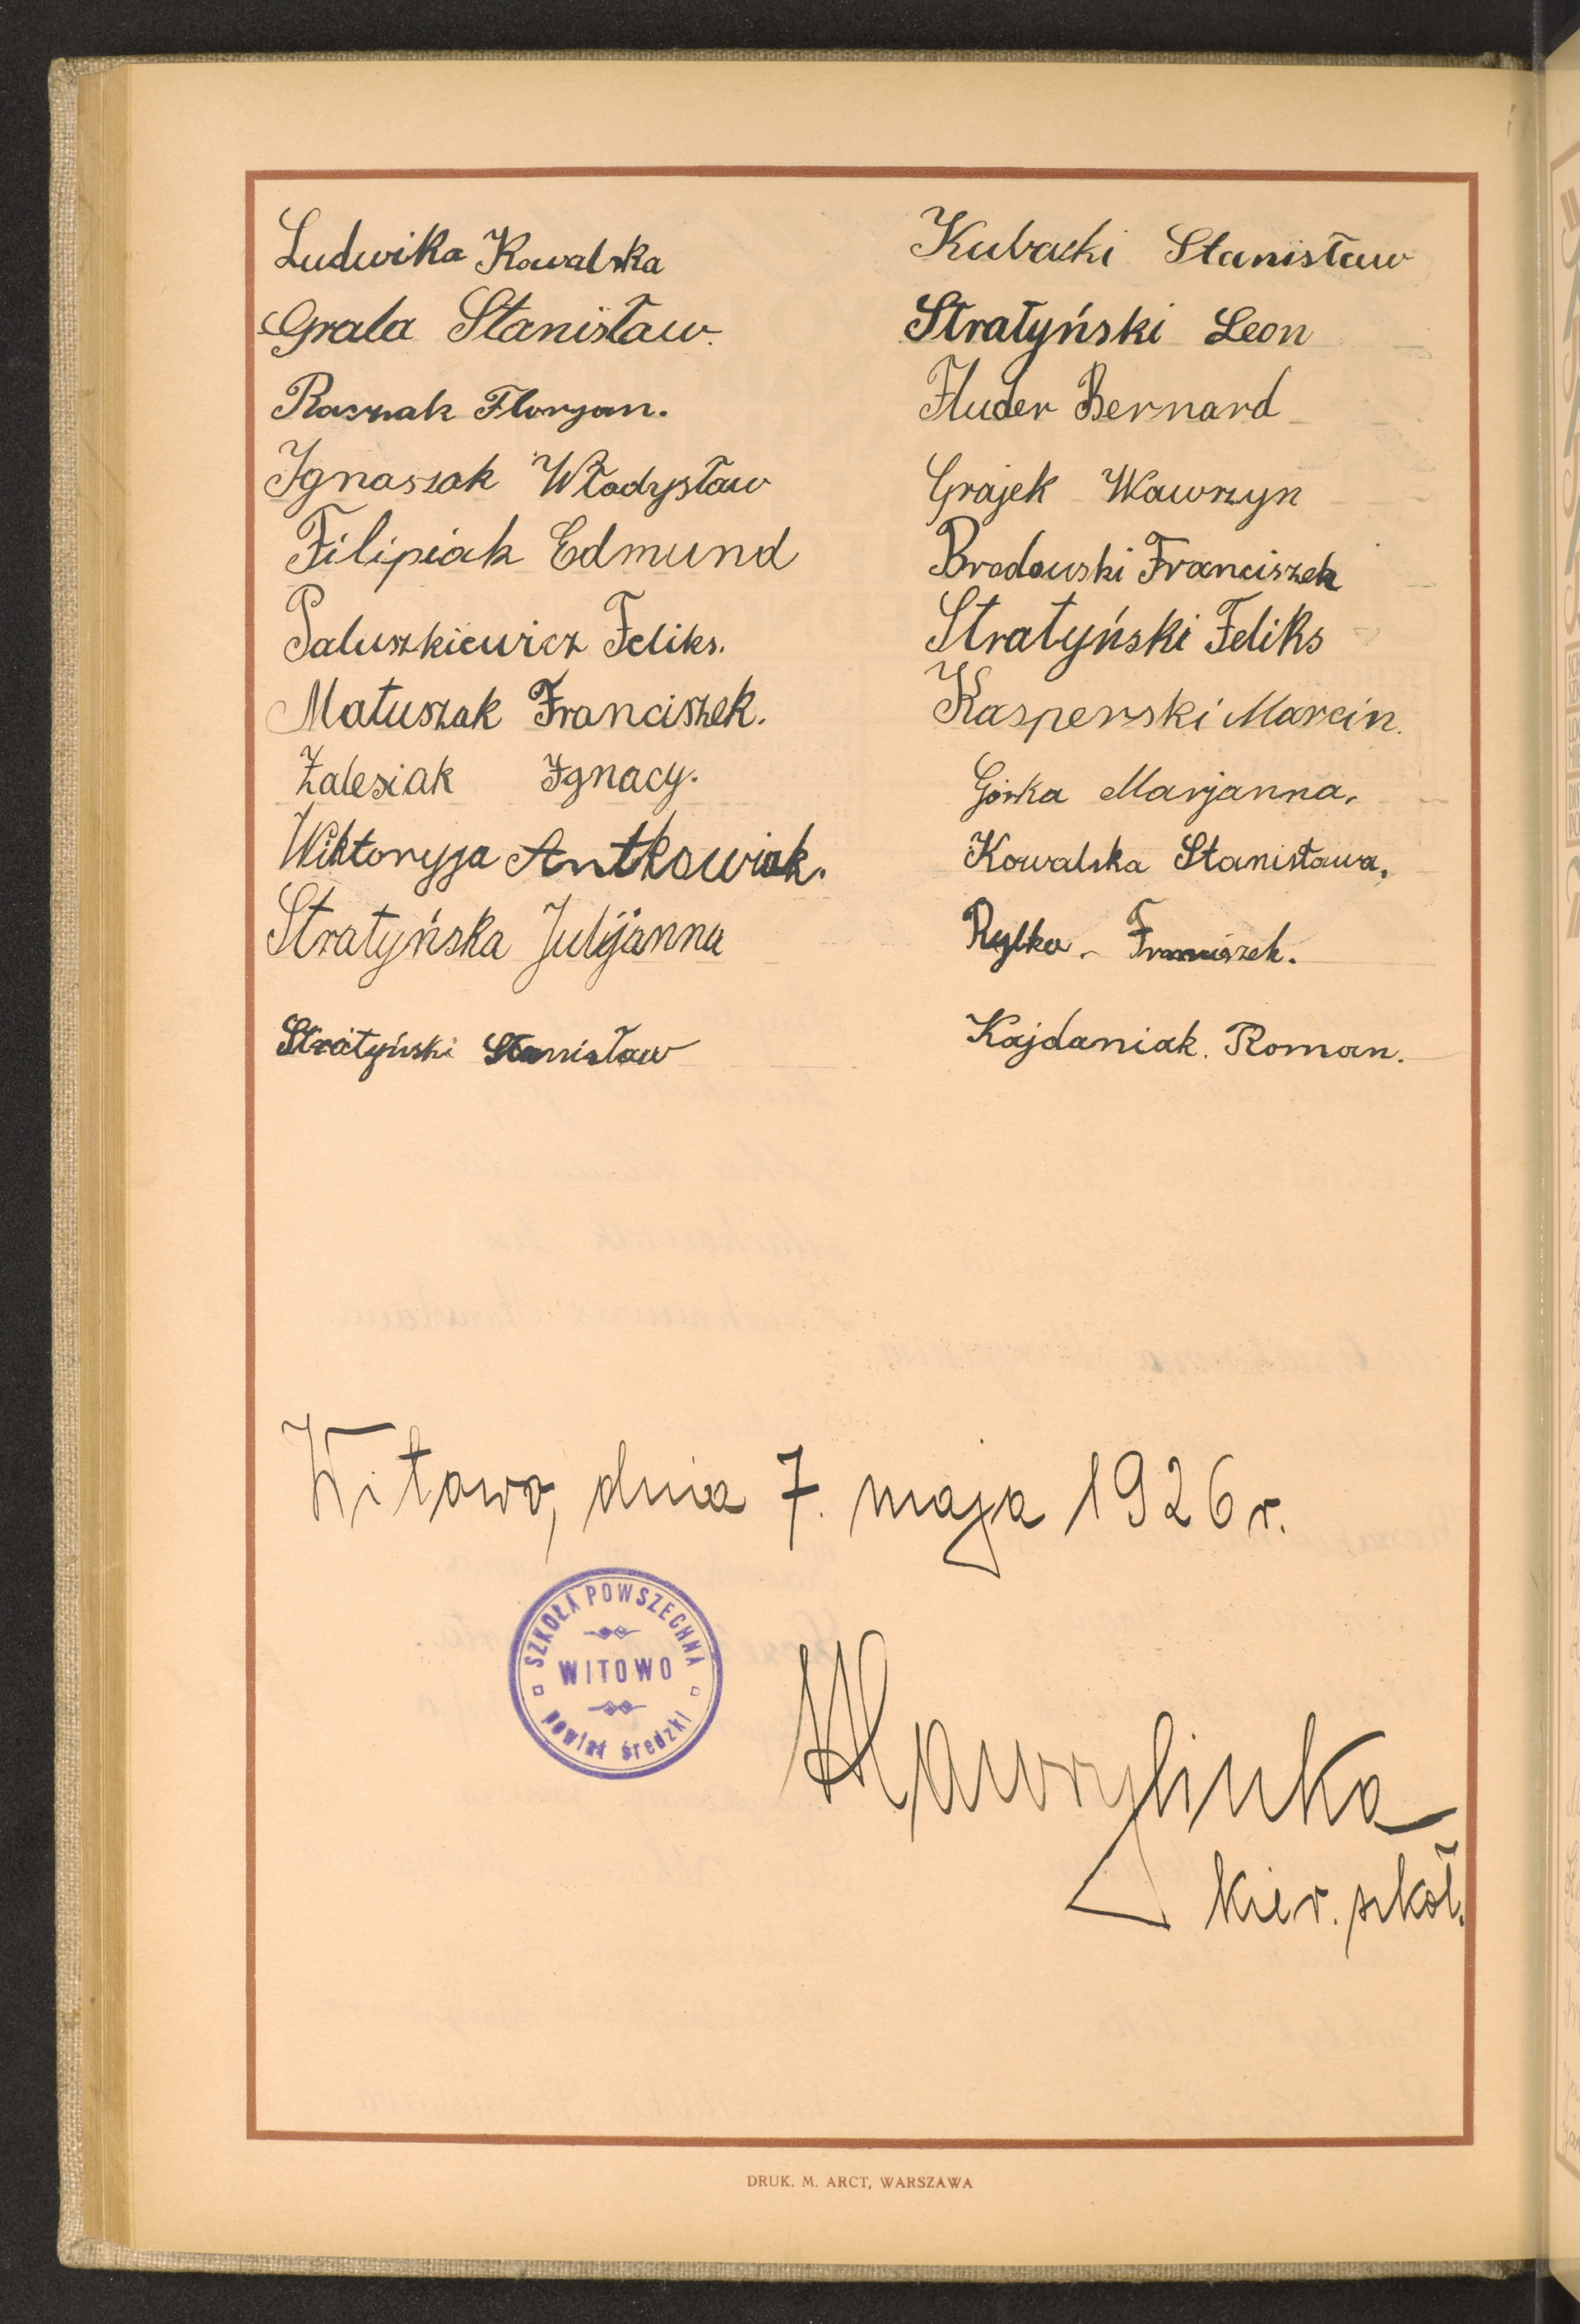 Ludwika Kowalska
Grala Stanisław.
Rasznak Florjan.
Ignaszak Władysław
Filipiak Edmund
Paluszkiewicz Feliks.
Matuszak Franciszek.
Zalesiak Ignacy.
Wiktoryja Antkowiak.
Stratyńska Julijanna
Stratyński Stanisław
Kubacki Stanisław
Stratyński Leon
Fluder Bernard
Grajek Wawrzyn
Brodowski Franciszek
Stratyński Feliks
Kasperski Marcin.
Górka Marjanna.
Kowalska Stanisława.
Rylko - Franciszek.
Kajdaniak. Roman.
Witowo, dnia 7. maja 1926 r.
SZKOŁA POWSZECHNA
WITOWO
powiat średzki
kier. szkoł.
DRUK. M. ARCT, WARSZAWA